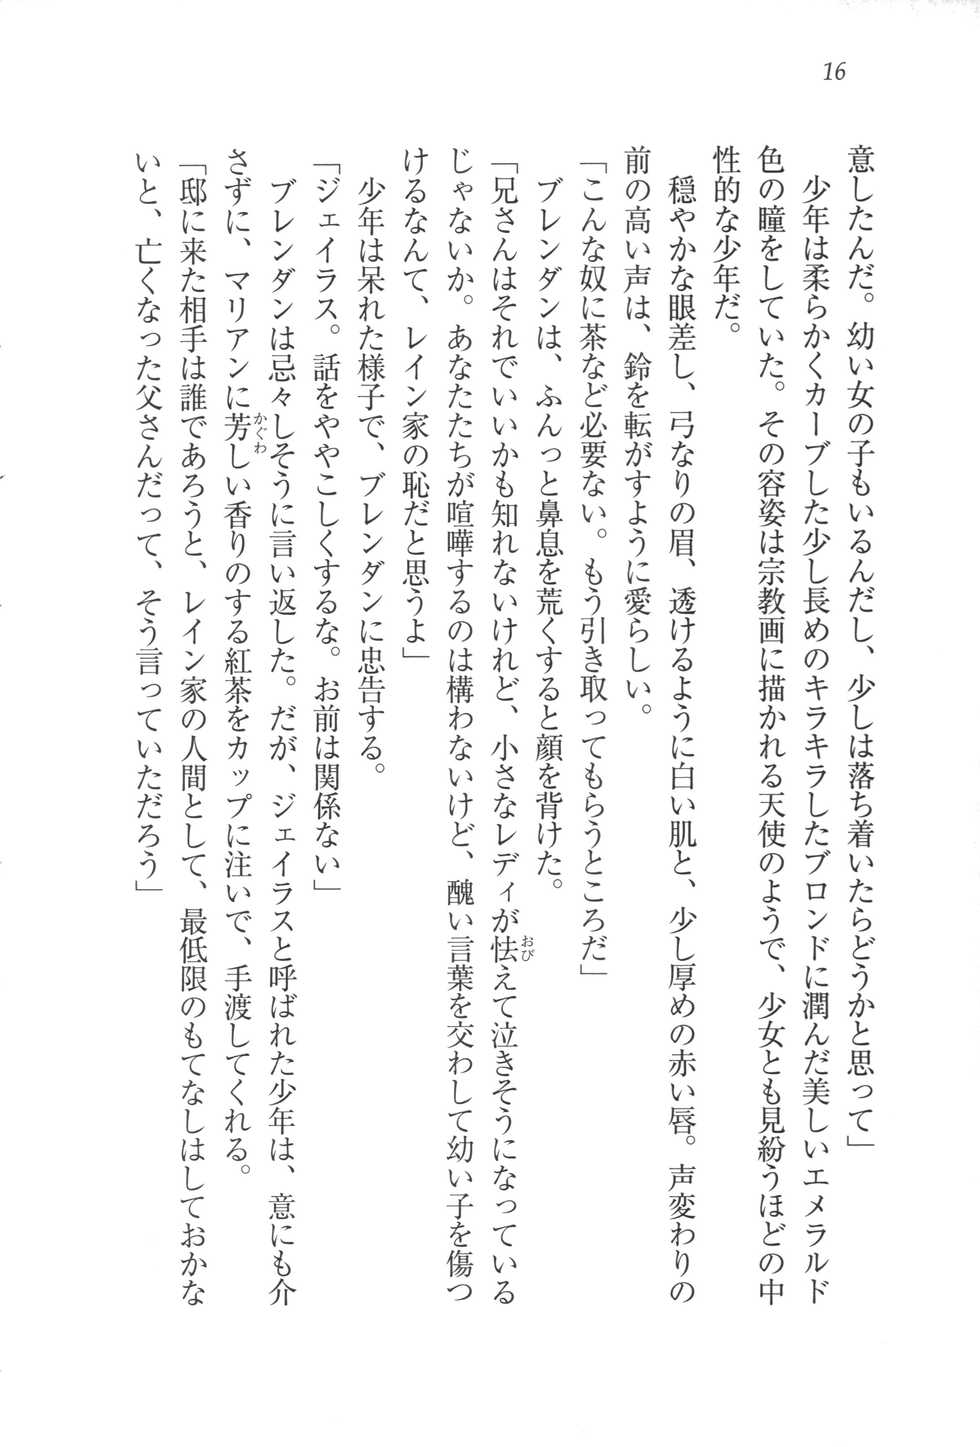 16
意したんだ。幼い女の子もいるんだし、少しは落ち着いたらどうかと思って」
少年は柔らかくカーブした少し長めのキラキラしたブロンドに潤んだ美しいエメラルド
色の瞳をしていた。その容姿は宗教画に描かれる天使のようで、少女とも見紛うほどの中
性的な少年だ。
穏やかな眼差し、弓なりの眉、透けるように白い肌と、少し厚めの赤い唇。声変わりの
前の高い声は、鈴を転がすように愛らしい。
「こんな奴に茶など必要ない。もう引き取ってもらうところだ」
ブレンダンは、ふんっと鼻息を荒くすると顔を背けた。
「兄さんはそれでいいかも知れないけれど、小さなレディが怯えて泣きそうになっている
おび
じゃないか。あなたたちが喧嘩するのは構わないけど、醜い言葉を交わして幼い子を傷つ
けるなんて、レイン家の恥だと思うよ」
少年は呆れた様子で、ブレンダンに忠告する。
「ジェイラス。話をややこしくするな。お前は関係ない」
ブレンダンは忌々しそうに言い返した。だが、ジェイラスと呼ばれた少年は、意にも介
さずに、マリアンに芳しい香りのする紅茶をカップに注いで、手渡してくれる。
かぐわ
「邸に来た相手は誰であろうと、レイン家の人間として、最低限のもてなしはしておかな
いと、亡くなった父さんだって、そう言っていただろう」